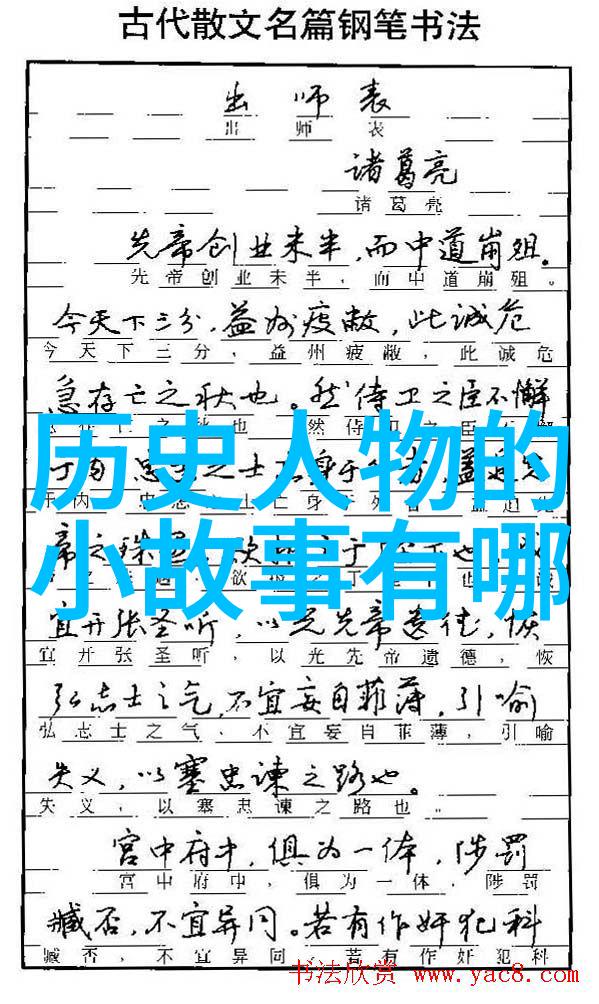 古代散文名篇钢笔书法
出师表
出师表
诸葛亮
诸葛亮
先帝创业未半,而中道崩殂。
先帝创业未半,而中道崩殂。
今天下三分,益州疲敝,此诚危
今天下三分,益州疲敝,此诚危
急存亡之秋也。然侍卫之臣不懈
历史人物的
小故事有哪
宜开张圣听,以光先帝遗德,恢
宜开张圣听,以光先帝遗德,恢
弘志士之气,不宜妄自菲薄,引喻
弘志士之气,不宜妄自菲薄,引喻
失义,以塞忠谏之路也。
失义,以塞忠谏之路也。
宫中府中,俱为一体,陟罚
宫中府中,俱为一体,陟罚
臧否,不宜异同。若有作奸犯科
臧否,不宜异同。若有作奸犯科
书法欣赏 www.yac8.com